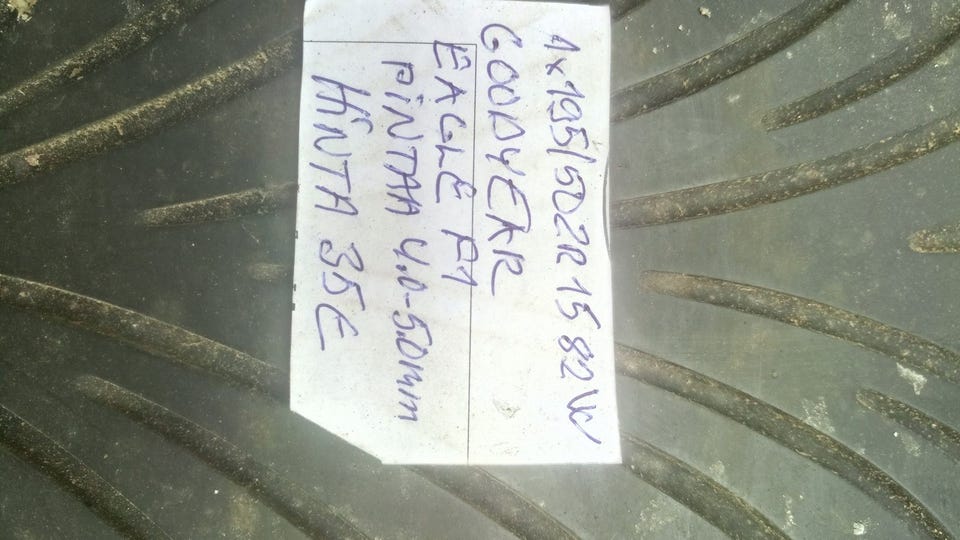 1x195/50ZR15 82W
GOODYEAR
EAGLE F1
PINTAA 4.0-5.0mm
HINTA 35E